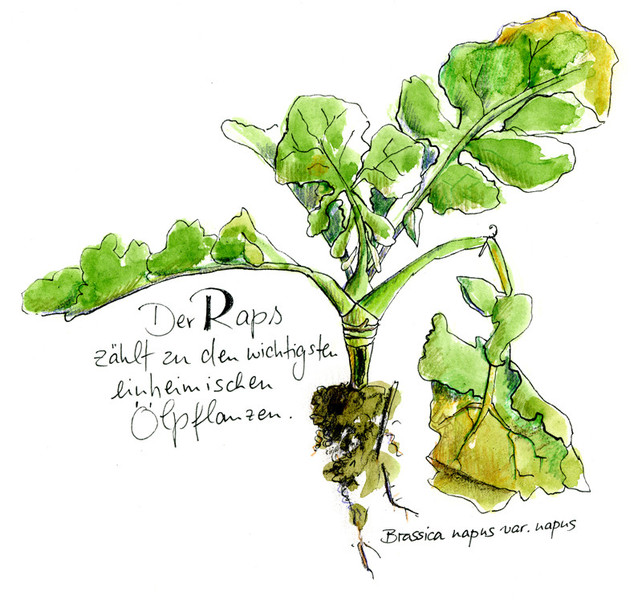 Der Raps
zählt zu den wichtigsten
einheimischen
Ölpflanzen.
Brassica napus var. napus